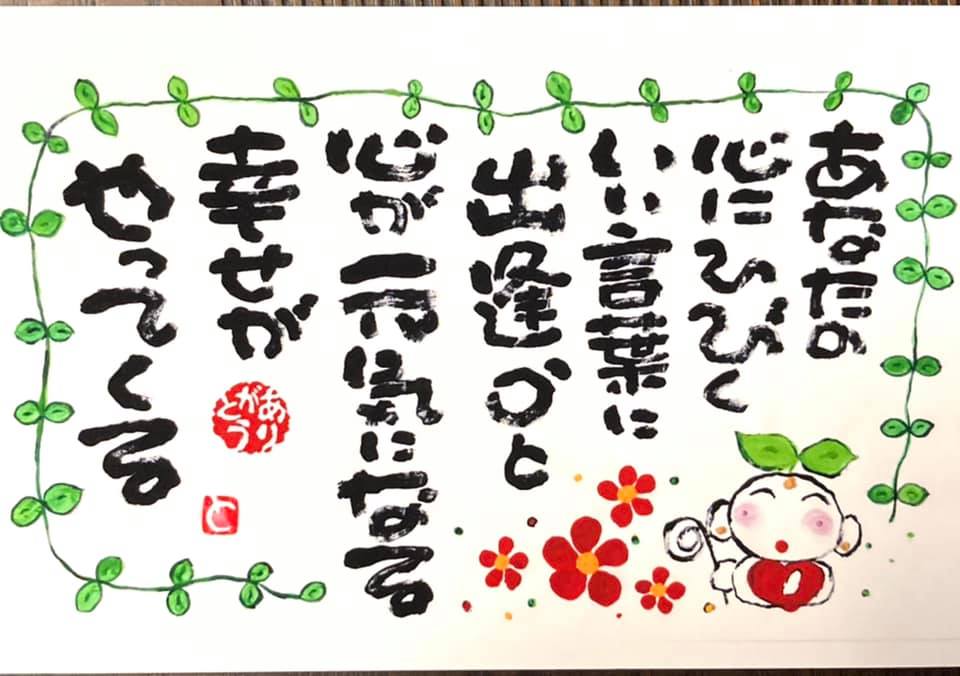 あなたの
心にひびく
いい言葉に
出逢うと
心が元気になる
幸せが
やってくる
ありがとう